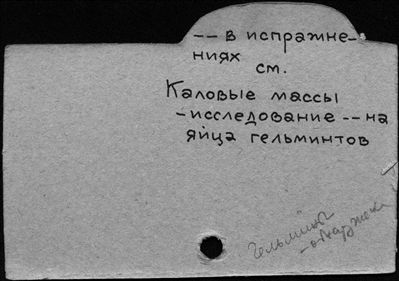 -- в испражне-
ниях
см.
Каловые массы
- исследование -- на
яйца гельминтов
Гельминты